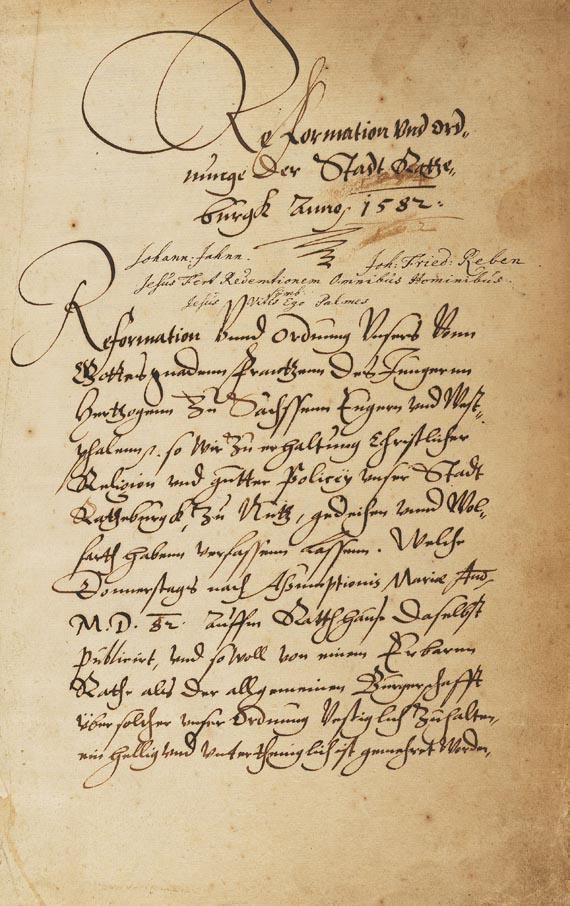 Reformation Vnd Ord-
nunge der Stadt Ratze-
burgk Anno 1582:
Johann: Jahnn. Joh: Fried: Reben
Jesus Fert Redemtionem Omnibus Hominibus.
Jesus Ego Palmes
Reformation Vnnd Ordnung Vnsers Vonn
Gottes gnadenn Frantzenn des Jüngernn
Hertzogenn Zu Sachssenn Engern vnd West-
phalenn. so wir Zu erhaltung Christlicher
Religion vnd gutter Policeÿ vnser Stadt
Ratzeburgk, Zu Nutz, gedeihen vnnd Wol-
farth habenn verfassenn lassenn. Welche
Donnerstags nach Assumptionis Mariæ
M. D. 82. Auffm Rathhause daselbst
Publicirt, vnd so woll von einem Erbarnn
Rathe als der allgemeinen Bürgerschafft
über solcher vnser Ordnung Vestiglich Zuhalten,
einhellig vnd Vntertheniglich ist Worden,